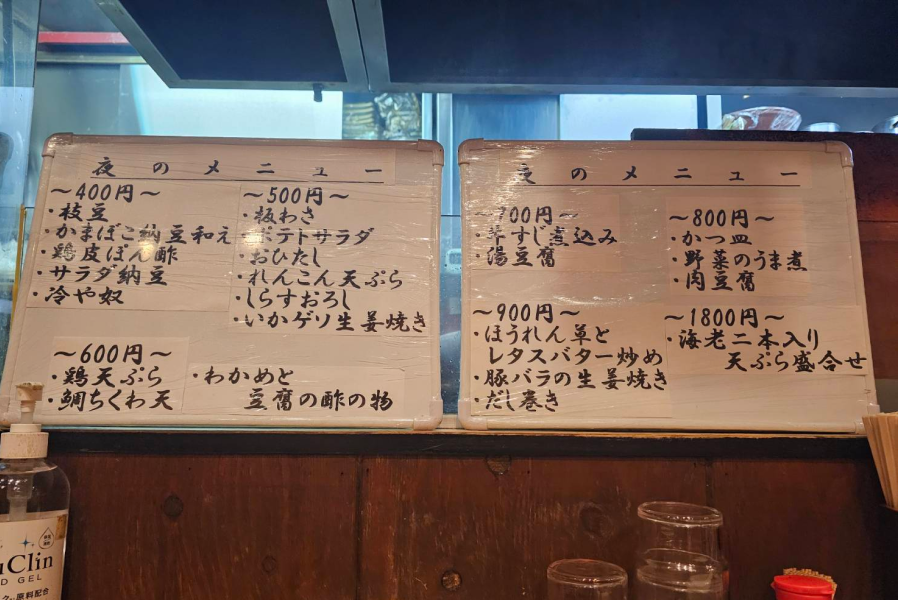 夜のメニュー
～400円～
・枝豆
・かまぼこ納豆和え
・鶏皮ぽん酢
・サラダ納豆
・冷や奴
～500円～
・板わさ
・ポテトサラダ
・おひたし
・れんこん天ぷら
・しらすおろし
・いかゲソ生姜焼き
～600円～
・鶏天ぷら
・鯛ちくわ天
・わかめと
豆腐の酢の物
夜のメニュー
～700円～
・牛すじ煮込み
・湯豆腐
～800円～
・かつ皿
・野菜のうま煮
・肉豆腐
～900円～
・ほうれん草と
レタスバター炒め
・豚バラの生姜焼き
・だし巻き
～1800円～
・海老二本入り
天ぷら盛合せ
Clin
D GEL
原料配合